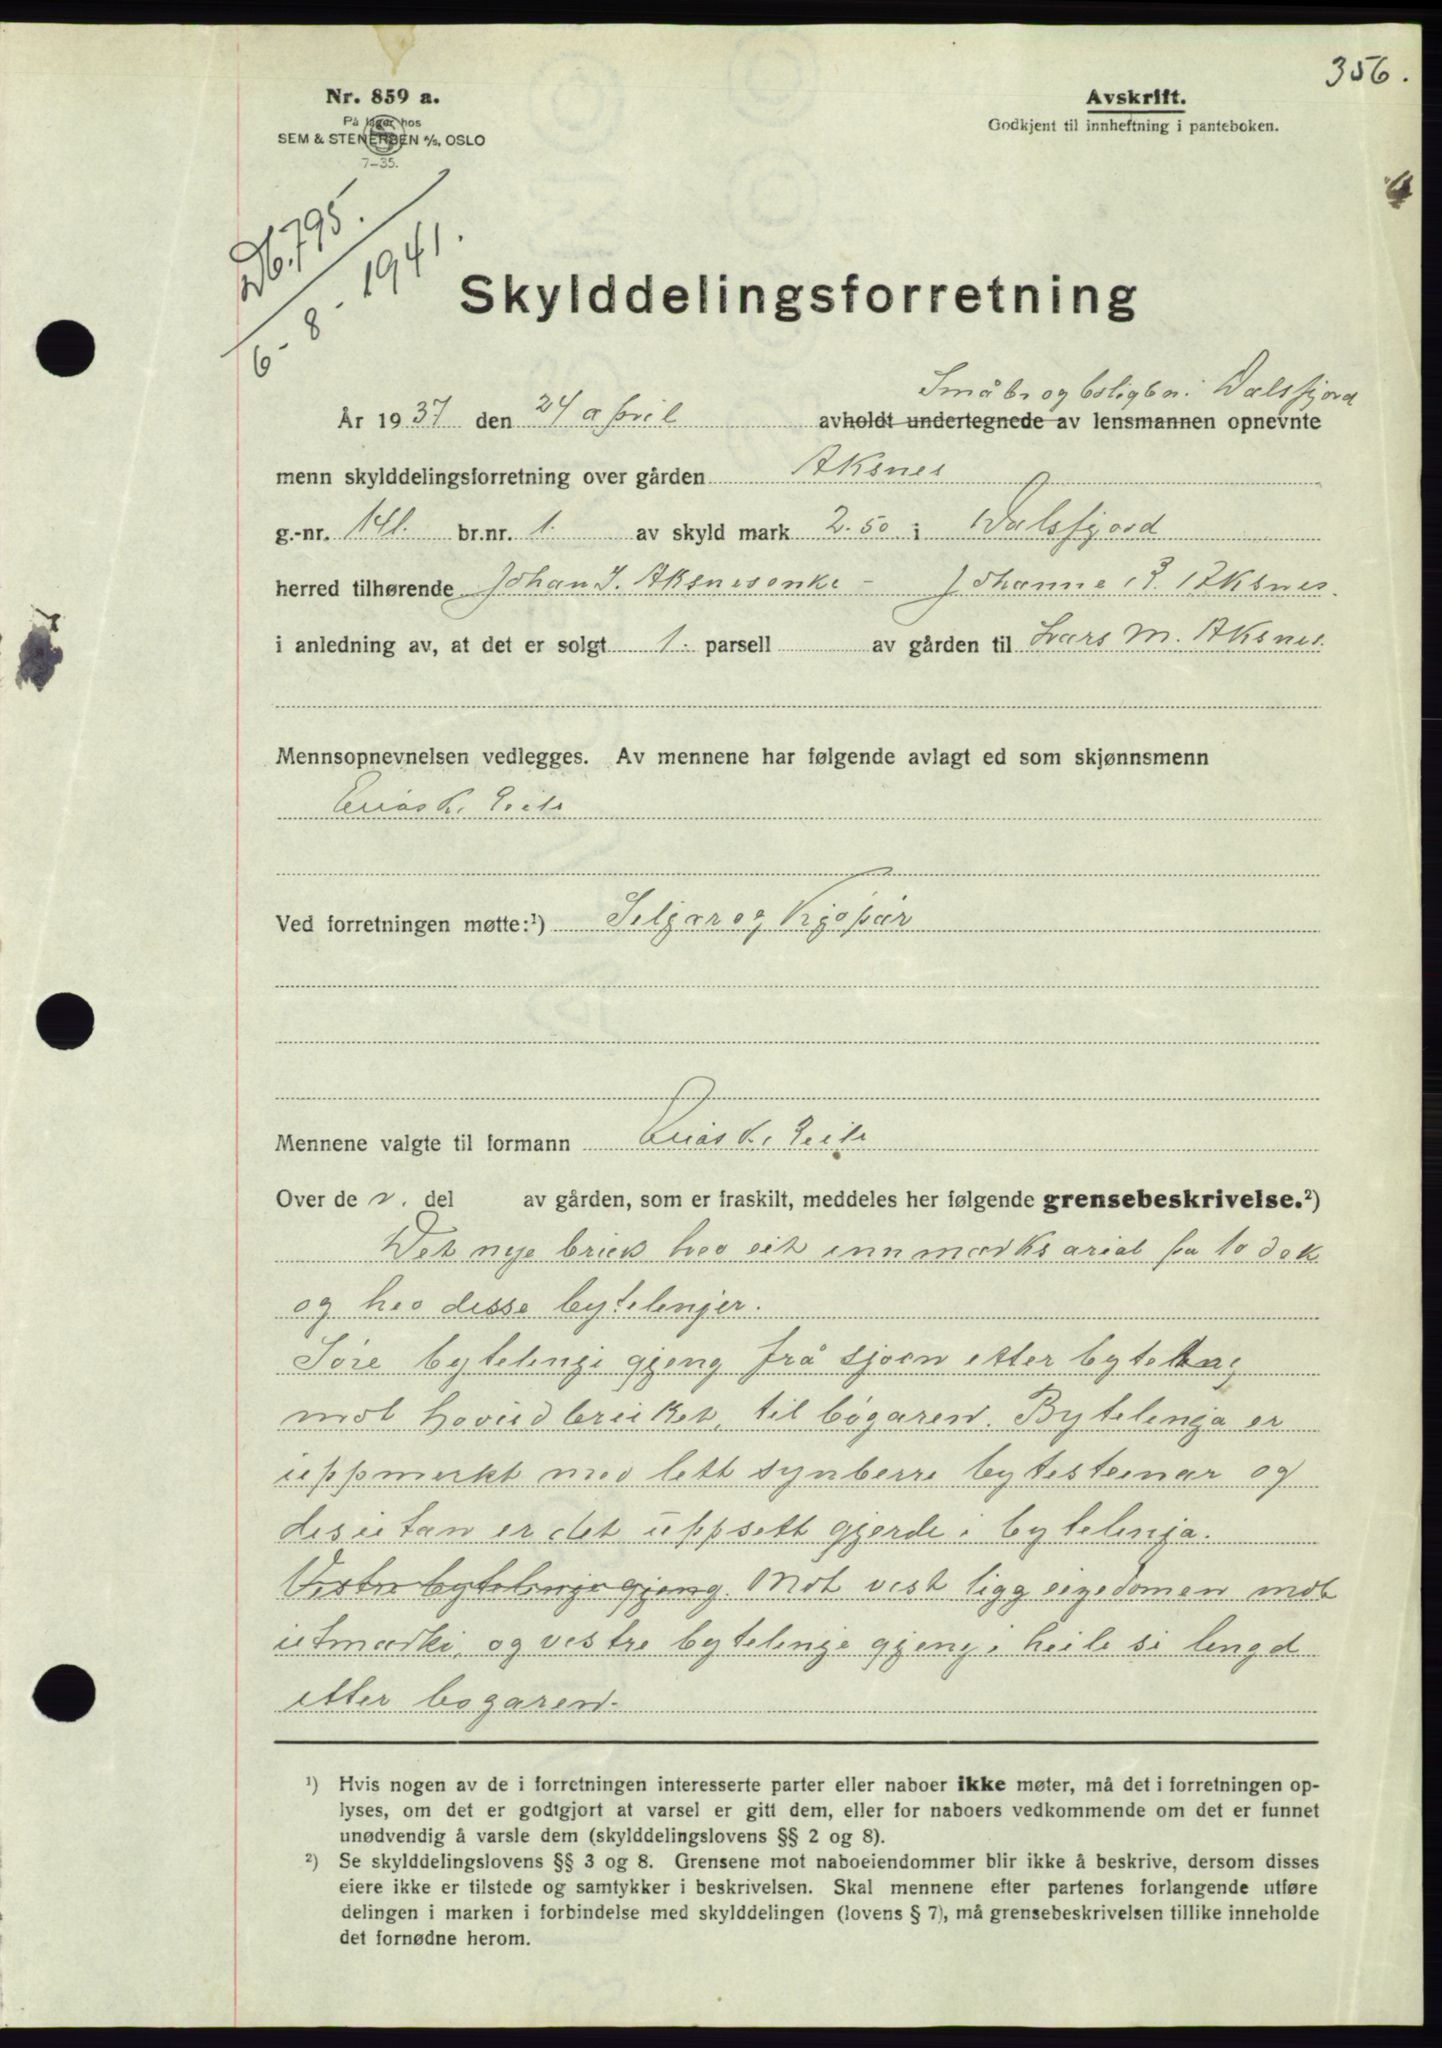 356.
Nr. 859 a.
På lager hos
SEM & STENERSEN A/S, OSLO
7-35.
Avskrift.
Godkjent til innheftning i panteboken.
Db. 795.
6-8-1941.
Skylddelingsforretning
Småbr og boligbr. i Dalsfjord
År 1937 den 24 april avholdt undertegnede av lensmannen opnevnte
menn skylddelingsforretning over gården Aksnes
g.-nr. 141. br.nr. 1. av skyld mark 2.50 i Dalsfjord
herred tilhørende Johan J. Aksnes enke - Johanne Aksnes.
i anledning av, at det er solgt 1. parsell av gården til Lars M. Aksnes.
Mennsopnevnelsen vedlegges. Av mennene har følgende avlagt ed som skjønnsmenn
Elias K.
Ved forretningen møtte:¹) Seljar og Kjøpar
Mennene valgte til formann Elias K.
Over de n. del av gården, som er fraskilt, meddeles her følgende grensebeskrivelse.²)
Det nye bruk hev eit innmarksareal på 10 dek
og hev disse bytelinjer.
Søre bytelinje gjeng frå sjøen etter byteline
mot hovudbruket, til bøgaren. Bytelinja er
uppmerkt med lett synberre bytesteinar og
desutan er det uppsett gjerde i bytelinja.
Vestre bytelinje gjeng. Mot vest ligg eigedomen mot
utmarki, og vestre bytelinje gjeng i heile si lengd
etter bøgaren.
¹) Hvis nogen av de i forretningen interesserte parter eller naboer ikke møter, må det i forretningen op-
lyses, om det er godtgjort at varsel er gitt dem, eller for naboers vedkommende om det er funnet
unødvendig å varsle dem (skylddelingslovens §§ 2 og 8).
²) Se skylddelingslovens §§ 3 og 8. Grensene mot naboeiendommer blir ikke å beskrive, dersom disses
eiere ikke er tilstede og samtykker i beskrivelsen. Skal mennene efter partenes forlangende utføre
delingen i marken i forbindelse med skylddelingen (lovens § 7), må grensebeskrivelsen tillike inneholde
det fornødne herom.